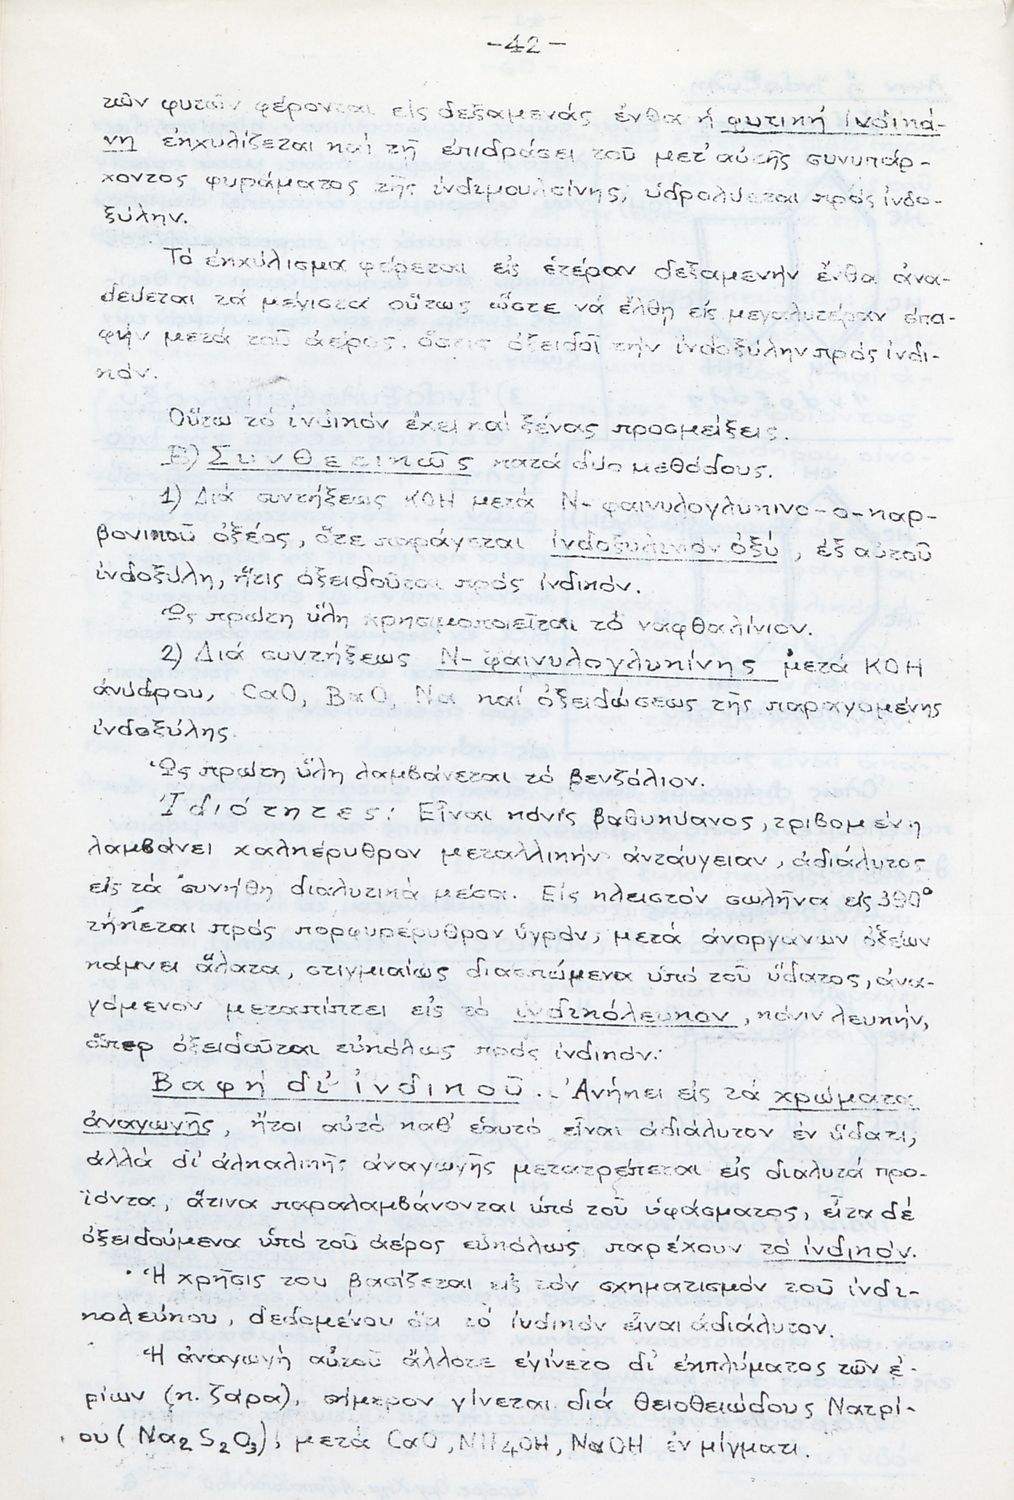 -42-
τῶν φυτῶν φέρονται εἰς δεξαμενάς ἔνθα ἡ φυτική ἰνδικά-
νη ἐκχυλίζεται καί τῇ ἐπιδράσει τοῦ μετ' αὐτῆς συνυπάρ-
χοντος φυράματος τῆς ἰνδιμουλσίνης, ὑδρολύεται πρός ἰνδο-
ξύλην.
Τό ἐκχύλισμα φέρεται εἰς ἑτέραν δεξαμενήν ἔνθα ἀνα-
δεύεται τά μέγιστα οὕτως ὥστε νά ἔλθῃ εἰς μεγαλυτέραν ἐπα-
φήν μετά τοῦ ἀέρος, ὅστις ὀξειδοῖ τήν ἰνδοξύλην πρός ἰνδι-
κόν.
Οὕτω τό ἰνδικόν ἔχει καί ξένας προσμείξεις.
Β) Συνθετικῶς κατά δύο μεθόδους.
1) Διά συντήξεως ΚΟΗ μετά Ν-φαινυλογλυκινο-ο-καρ-
βονικοῦ ὀξέος, ὅτε παράγεται ἰνδοξυλικόν ὀξύ, ἐξ αὐτοῦ
ἰνδοξύλη, ἥτις ὀξειδοῦται πρός ἰνδικόν.
Ὡς πρώτη ὕλη χρησιμοποιεῖται τό ναφθαλίνιον.
2) Διά συντήξεως Ν-φαινυλογλυκίνης μετά ΚΟΗ
ἀνύδρου, CaO, BaO, Na καί ὀξειδώσεως τῆς παραγομένης
ἰνδοξύλης.
Ὡς πρώτη ὕλη λαμβάνεται τό βενζόλιον.
Ἰδιότητες: Εἶναι κόνις βαθυκύανος, τριβομένη
λαμβάνει χαλκέρυθρον μεταλλικήν ἀνταύγειαν, ἀδιάλυτος
εἰς τά συνήθη διαλυτικά μέσα. Εἰς κλειστόν σωλῆνα εἰς 390°
τήκεται πρός πορφυρέρυθρον ὑγρόν, μετά ἀνοργάνων ὀξέων
κάμνει ἅλατα, στιγμιαίως διασπώμενα ὑπό τοῦ ὕδατος, ἀνα-
γόμενον μεταπίπτει εἰς τό ἰνδικόλευκον, κόνιν λευκήν,
ὅπερ ὀξειδοῦται εὐκόλως πρός ἰνδικόν.
Βαφή δι' ἰνδικοῦ.- Ἀνήκει εἰς τά χρώματα
ἀναγωγῆς, ἤτοι αὐτό καθ' ἑαυτό εἶναι ἀδιάλυτον ἐν ὕδατι,
ἀλλά δι' ἀλκαλικῆς ἀναγωγῆς μετατρέπεται εἰς διαλυτά προ-
ϊόντα, ἅτινα παραλαμβάνονται ὑπό τοῦ ὑφάσματος, εἶτα δέ
ὀξειδούμενα ὑπό τοῦ ἀέρος εὐκόλως παρέχουν τό ἰνδικόν.
Ἡ χρῆσις του βασίζεται εἰς τόν σχηματισμόν τοῦ ἰνδι-
κολεύκου, δεδομένου ὅτι τό ἰνδικόν εἶναι ἀδιάλυτον.
Ἡ ἀναγωγή αὐτοῦ ἄλλοτε ἐγίνετο δι' ἐκπλύματος τῶν ἐ-
ρίων (κ. ζάρα), σήμερον γίνεται διά θειοθειώδους Νατρί-
ου (Na2S2O3), μετά CaO, NH4OH, NaOH ἐν μίγματι.